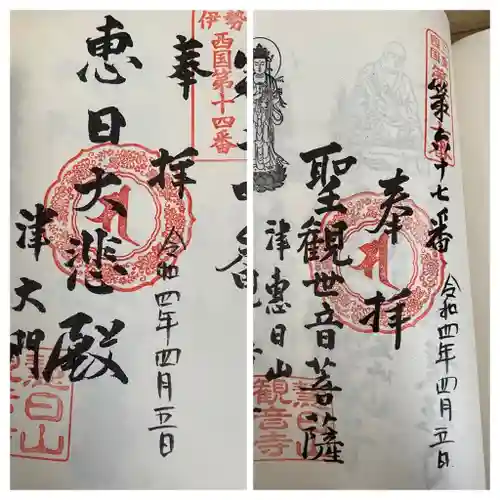 伊勢
西国第十四番
奉
拝
令和四年四月五日
恵日大悲殿
津大門
恵日山
観音寺
第六十七番
奉拝
令和四年四月五日
聖観世音菩薩
津恵日山
恵日山
観音寺